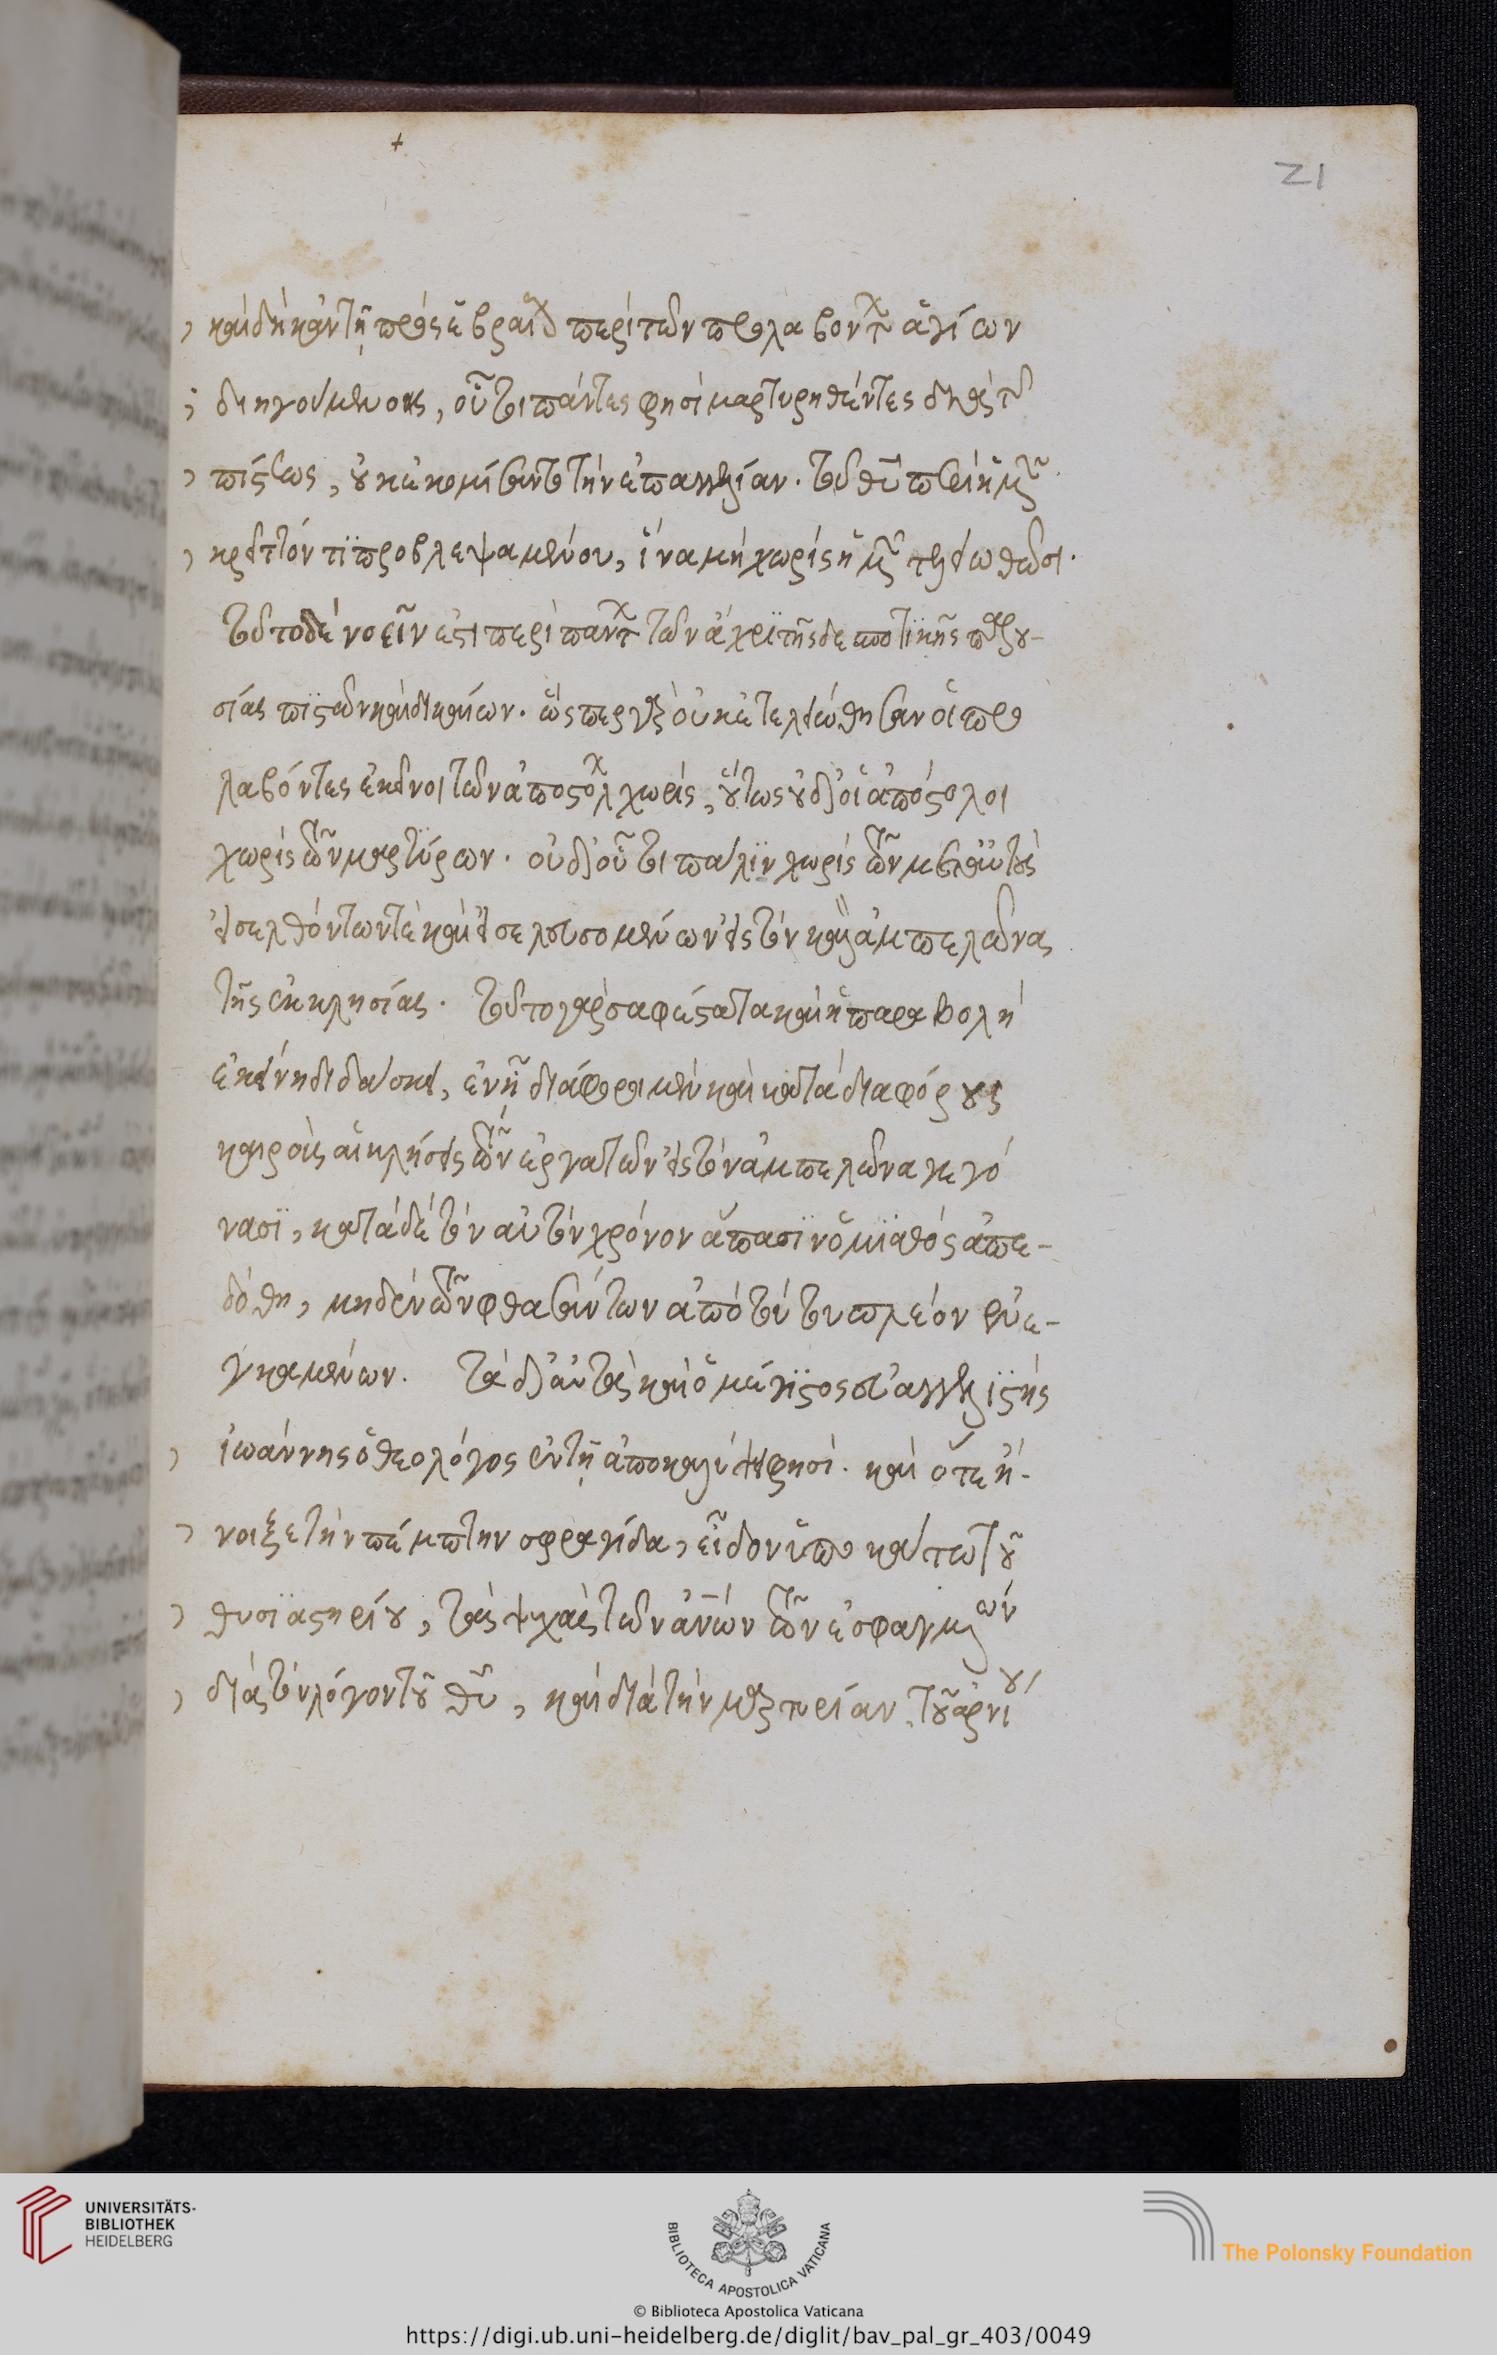 +
21
καὶ δὴ κἀν τῇ πρὸς ἑβραί περὶ τῶν προλαβόντ ἁγίων
διηγούμενος, οὗτοι πάντες φησὶ μαρτυρηθέντες διὰ τ
πίστεως, οὐκ ἐκομίσαντο τὴν ἐπαγγελίαν. τοῦ θῦ περὶ ἡμῶν
κρεῖττόν τι προβλεψαμένου, ἵνα μὴ χωρὶς ἡμῶν τελειωθῶσι.
τοῦτο δὲ νοεῖν ἐστι περὶ πάντ τῶν ἄχρι τῆς δεσποτικῆς παρου-
σίας πιστῶν καὶ δικαίων. ὥσπερ γὰρ οὐκ ἐτελειώθησαν οἱ προ
λαβόντες ἐκεῖνοι τῶν ἀποστόλ χωρίς, οὕτως οὐδ' οἱ ἀπόστολοι
χωρὶς τῶν μαρτύρων. οὐδ' οὗτοι πάλιν χωρὶς τῶν μετ' αὐτοὺς
εἰσελθόντων τὲ καὶ εἰσελευσομένων εἰς τὸν καλὸν ἀμπελῶνα
τῆς ἐκκλησίας. τοῦτο γὰρ σαφέστατα καὶ ἡ παραβολὴ
ἐκείνη διδάσκει, ἐν ᾗ διάφοροι μὲν καὶ κατὰ διαφόρους
καιροὺς αἱ κλήσεις τῶν ἐργατῶν εἰς τὸν ἀμπελῶνα γεγό
νασι, κατὰ δὲ τὸν αὐτὸν χρόνον ἅπασιν ὁ μισθὸς ἀπε-
δόθη, μηδὲν τῶν φθασάντων ἀπὸ τούτου πλέον εὐε-
γκαμένων. τὰ δ' αὐτὰ καὶ ὁ μέγιστος εὐαγγελιστὴς
ἰωάννης ὁ θεολόγος ἐν τῇ ἀποκαλύψει φησί. καὶ ὅτε ἤ-
νοιξε τὴν πέμπτην σφραγίδα, εἶδον ὑποκάτω τοῦ
θυσιαστηρίου, τὰς ψυχὰς τῶν ἀνῶν τῶν ἐσφαγμένων
διὰ τὸν λόγον τοῦ θῦ, καὶ διὰ τὴν μαρτυρίαν τοῦ ἀρνίου
UNIVERSITÄTS-
BIBLIOTHEK
HEIDELBERG
BIBLIOTECA APOSTOLICA VATICANA
The Polonsky Foundation
© Biblioteca Apostolica Vaticana
https://digi.ub.uni-heidelberg.de/diglit/bav_pal_gr_403/0049